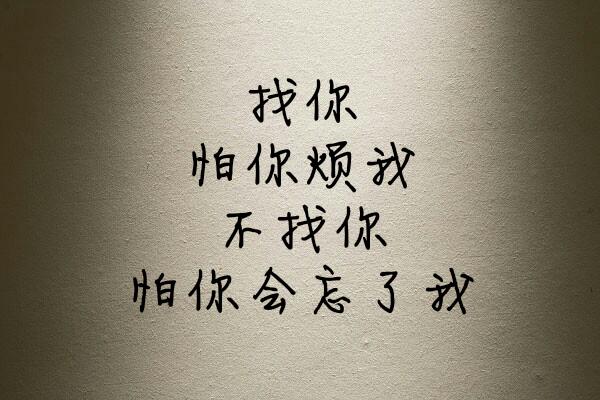 找你
怕你烦我
不找你
怕你会忘了我